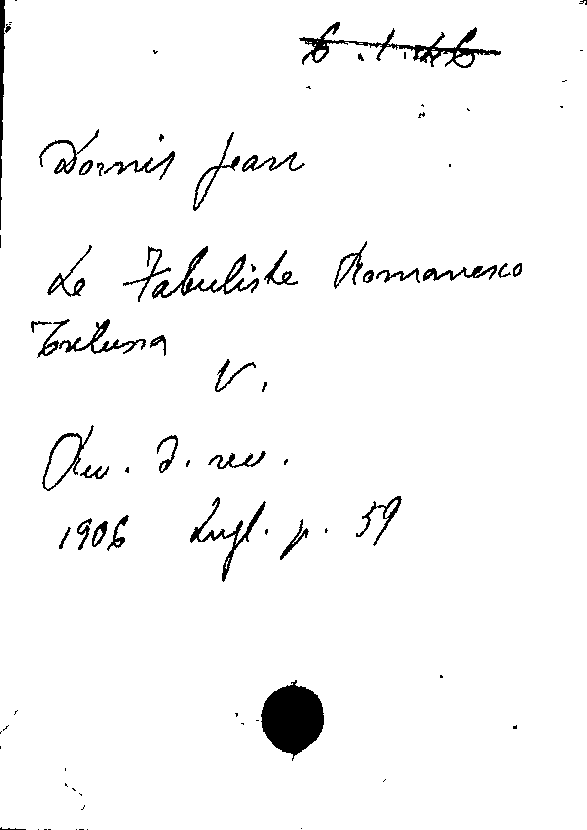 6.1.46
Dornis Jean
Le Fabuliste Romanesco
Trilussa
V.
Rev. d. rev.
1906 Lugl. p. 59